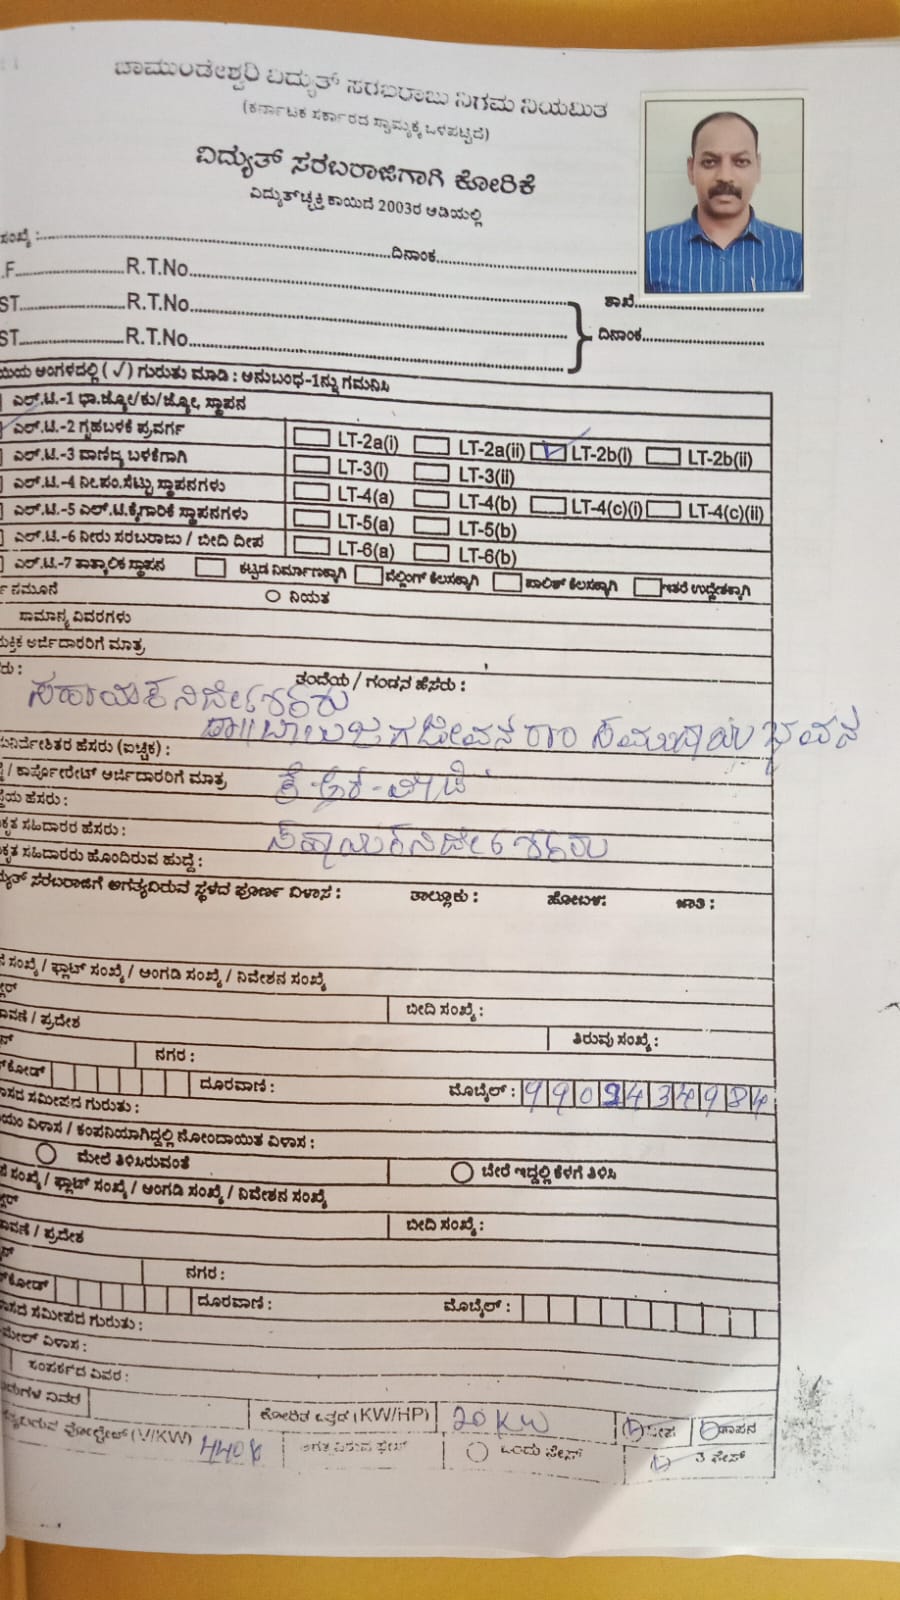 ಚಾಮುಂಡೇಶ್ವರಿ ವಿದ್ಯುತ್ ಸರಬರಾಜು ನಿಗಮ ನಿಯಮಿತ
(ಕರ್ನಾಟಕ ಸರ್ಕಾರದ ಸ್ವಾಮ್ಯಕ್ಕೆ ಒಳಪಟ್ಟಿದೆ)
ವಿದ್ಯುತ್ ಸರಬರಾಜಿಗಾಗಿ ಕೋರಿಕೆ
ವಿದ್ಯುತ್‌ಚ್ಛಕ್ತಿ ಕಾಯಿದೆ 2003ರ ಅಡಿಯಲ್ಲಿ
ಸಂಖ್ಯೆ : ದಿನಾಂಕ
.F R.T.No
ST R.T.No ಶಾಖೆ
ST R.T.No ದಿನಾಂಕ
ಅಂಗಳದಲ್ಲಿ (✓) ಗುರುತು ಮಾಡಿ : ಅನುಬಂಧ-1ನ್ನು ಗಮನಿಸಿ
ಎಲ್.ಟಿ.-1 ಭಾ.ಜ್ಯೋ/ಕು/ಜ್ಯೋ, ಸ್ಥಾಪನ
ಎಲ್.ಟಿ.-2 ಗೃಹಬಳಕೆ ಪ್ರವರ್ಗ LT-2a(i) LT-2a(ii) ✓ LT-2b(i) LT-2b(ii)
ಎಲ್.ಟಿ.-3 ವಾಣಿಜ್ಯ ಬಳಕೆಗಾಗಿ LT-3(i) LT-3(ii)
ಎಲ್.ಟಿ.-4 ನೀ.ಪಂ.ಸೆಟ್ಟು ಸ್ಥಾಪನಗಳು LT-4(a) LT-4(b) LT-4(c)(i) LT-4(c)(ii)
ಎಲ್.ಟಿ.-5 ಎಲ್.ಟಿ.ಕೈಗಾರಿಕೆ ಸ್ಥಾಪನಗಳು LT-5(a) LT-5(b)
ಎಲ್.ಟಿ.-6 ನೀರು ಸರಬರಾಜು / ಬೀದಿ ದೀಪ LT-6(a) LT-6(b)
ಎಲ್.ಟಿ.-7 ತಾತ್ಕಾಲಿಕ ಸ್ಥಾಪನ ಕಟ್ಟಡ ನಿರ್ಮಾಣಕ್ಕಾಗಿ ವೆಲ್ಡಿಂಗ್ ಕೆಲಸಕ್ಕಾಗಿ ಪಾಲಿಶ್ ಕೆಲಸಕ್ಕಾಗಿ ಇತರೆ ಉದ್ದೇಶಕ್ಕಾಗಿ
ನಮೂನೆ ನಿಯತ
ಸಾಮಾನ್ಯ ವಿವರಗಳು
ಅರ್ಜಿದಾರರಿಗೆ ಮಾತ್ರ
ತಂದೆಯ / ಗಂಡನ ಹೆಸರು :
ಸಹಾಯಕ ನಿರ್ದೇಶಕರು
ಡಾ|| ಬಾಬು ಜಗಜೀವನ ರಾಂ ಸಮುದಾಯ ಭವನ
ಹೆಸರು (ಐಚ್ಛಿಕ) :
/ ಕಾರ್ಪೋರೇಟ್ ಅರ್ಜಿದಾರರಿಗೆ ಮಾತ್ರ ಕೆ-ಆರ್-ಪೇಟೆ
ಹೆಸರು :
ಸಹಿದಾರರ ಹೆಸರು : ಸಹಾಯಕ ನಿರ್ದೇಶಕರು
ಸಹಿದಾರರು ಹೊಂದಿರುವ ಹುದ್ದೆ :
ಸರಬರಾಜಿಗೆ ಅಗತ್ಯವಿರುವ ಸ್ಥಳದ ಪೂರ್ಣ ವಿಳಾಸ : ತಾಲ್ಲೂಕು : ಹೋಬಳಿ: ಜಾತಿ :
ಸಂಖ್ಯೆ / ಫ್ಲಾಟ್ ಸಂಖ್ಯೆ / ಅಂಗಡಿ ಸಂಖ್ಯೆ / ನಿವೇಶನ ಸಂಖ್ಯೆ
ಬೀದಿ ಸಂಖ್ಯೆ :
/ ಪ್ರದೇಶ ತಿರುವು ಸಂಖ್ಯೆ :
ನಗರ :
ದೂರವಾಣಿ : ಮೊಬೈಲ್ : 9902434984
ಸಮೀಪದ ಗುರುತು :
ವಿಳಾಸ / ಕಂಪನಿಯಾಗಿದ್ದಲ್ಲಿ ನೋಂದಾಯಿತ ವಿಳಾಸ :
ಮೇಲೆ ತಿಳಿಸಿರುವಂತೆ ಬೇರೆ ಇದ್ದಲ್ಲಿ ಕೆಳಗೆ ತಿಳಿಸಿ
ಸಂಖ್ಯೆ / ಫ್ಲಾಟ್ ಸಂಖ್ಯೆ / ಅಂಗಡಿ ಸಂಖ್ಯೆ / ನಿವೇಶನ ಸಂಖ್ಯೆ
ಬೀದಿ ಸಂಖ್ಯೆ :
/ ಪ್ರದೇಶ
ನಗರ :
ದೂರವಾಣಿ : ಮೊಬೈಲ್ :
ಸಮೀಪದ ಗುರುತು :
ವಿಳಾಸ :
ಸಂಪರ್ಕದ ವಿವರ :
ವಿವರ ಕೋರಿತ ಒತ್ತಡ (KW/HP) 20 KW ದೀಪ ತಾಪನ
ವೋಲ್ಟೇಜ್ (V/KW) 440 ಅಗತ್ಯವಿರುವ ಫೇಸ್ ಒಂದು ಫೇಸ್ 3 ಫೇಸ್